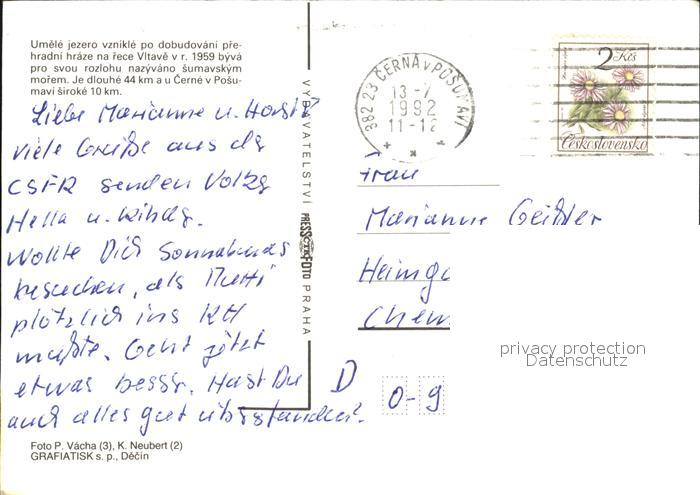 Umělé jezero vzniklé po dobudování pře-
hradní hráze na řece Vltavě v r. 1959 bývá
pro svou rozlohu nazýváno šumavským
mořem. Je dlouhé 44 km a u Černé v Pošu-
maví široké 10 km.
Liebe Marianne u. Horst!
viele Grüße aus der
CSFR senden Volker
Hella u. Kinder.
Wollte Dich Sonnabends
besuchen, als Mutti
plötzlich ins KH
mußte. Geht jetzt
etwas besser. Hast Du
auch alles gut überstanden?
Foto P. Vácha (3), K. Neubert (2)
GRAFIATISK s. p., Děčín
VYDAVATELSTVÍ PRESSFOTO PRAHA
382 23 ČERNÁ v POŠUMAVÍ
13-7
1992
11-12
2 Kčs
Československo
Frau
Marianne Geißler
Heimga
Chem
D
O-9
privacy protection
Datenschutz